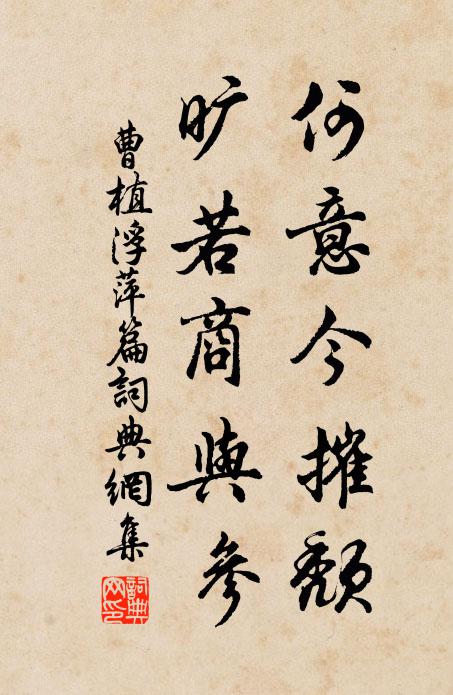 何意今摧颓
旷若商與參
曹植浮萍篇詞典網集
詞典网印